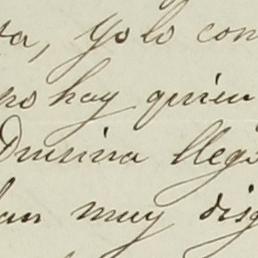 ta, yo lo con
no hay quien
Drusina llegó
han muy disg